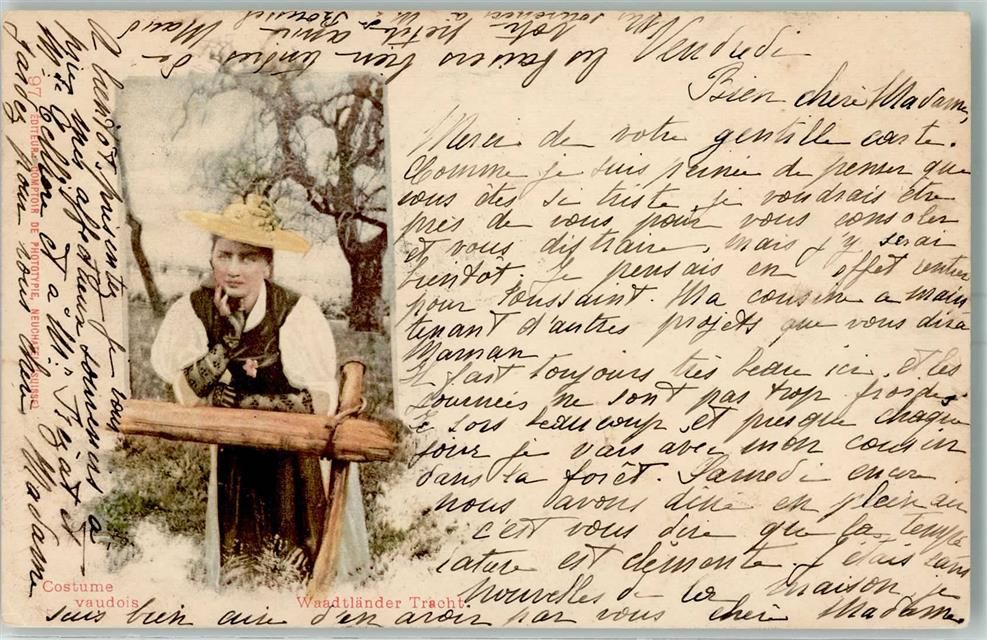 Vendredi
Bien chère Madame,
Merci de votre gentille carte.
Comme je suis peinée de penser que
vous êtes si triste, je voudrais être
près de vous pour vous consoler
et vous distraire, mais j'y serai
bientôt. Je pensais en effet rentrer
pour Toussaint. Ma cousine a main
tenant d'autres projets que vous dira
Maman
Il fait toujours très beau ici, et les
journées ne sont pas trop froides
Je sors beaucoup, et presque chaque
jour je vais avec mon cousin
dans la forêt. Samedi encore
nous avons dîné en plein air
c'est vous dire que la tempé
rature est clémente. J'étais sans
nouvelles de la maison, je
suis bien aise d'en avoir par vous chère Madame
A bientôt, puisents je vous
prie mes affectueux souvenirs à
Mr et à
gardez pour vous chère Madame
les baisers bien tendres de
votre petite amie Maud
Mes souvenirs à Mr Roussel
97 EDITEUR: COMPTOIR DE PHOTOTYPIE, NEUCHATEL (SUISSE)
Costume
vaudois
Waadtländer Tracht.